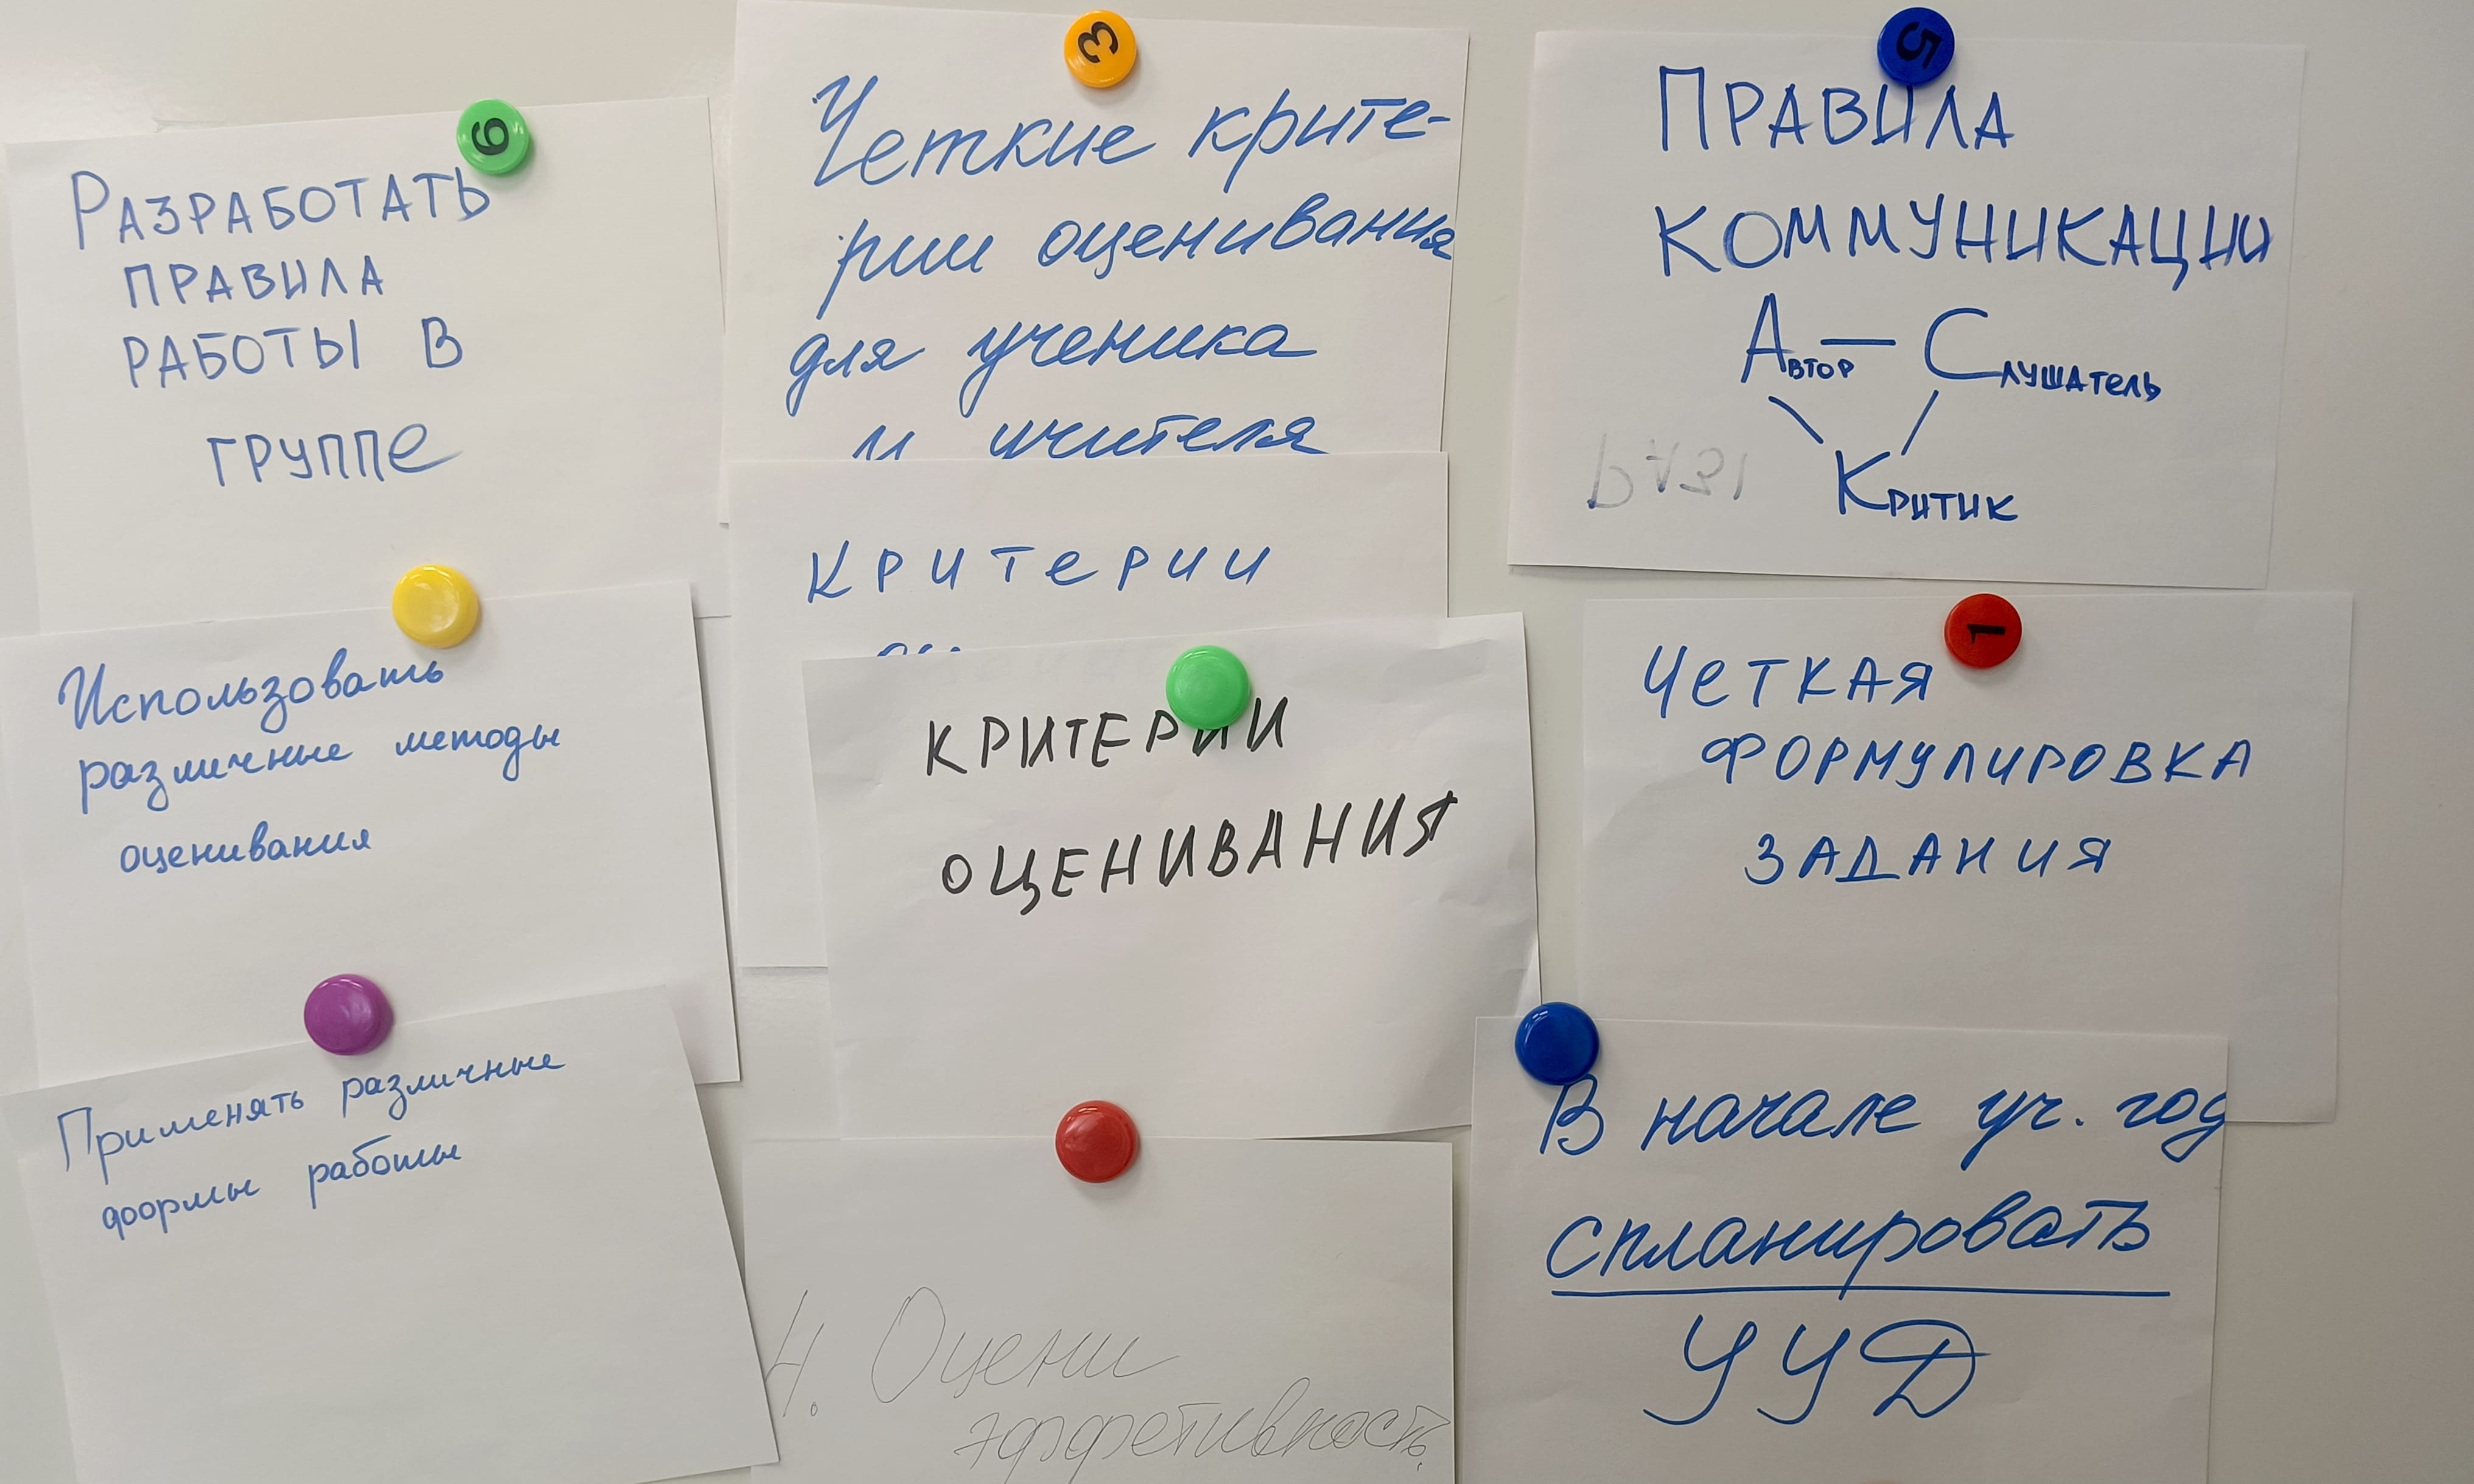 6
РАЗРАБОТАТЬ
ПРАВИЛА
РАБОТЫ В
ГРУППЕ
Использовать
различные методы
оценивания
Применять различные
формы работы
3
Четкие крите-
рии оценивания
для ученика
и учителя
Критерии
КРИТЕРИИ
ОЦЕНИВАНИЯ
4. Оцени
эффетивность
5
ПРАВИЛА
КОММУНИКАЦИИ
Автор — Слушатель
Критик
РАЗГ
1
Четкая
формулировка
задания
В начале уч. год
спланировать
УУД